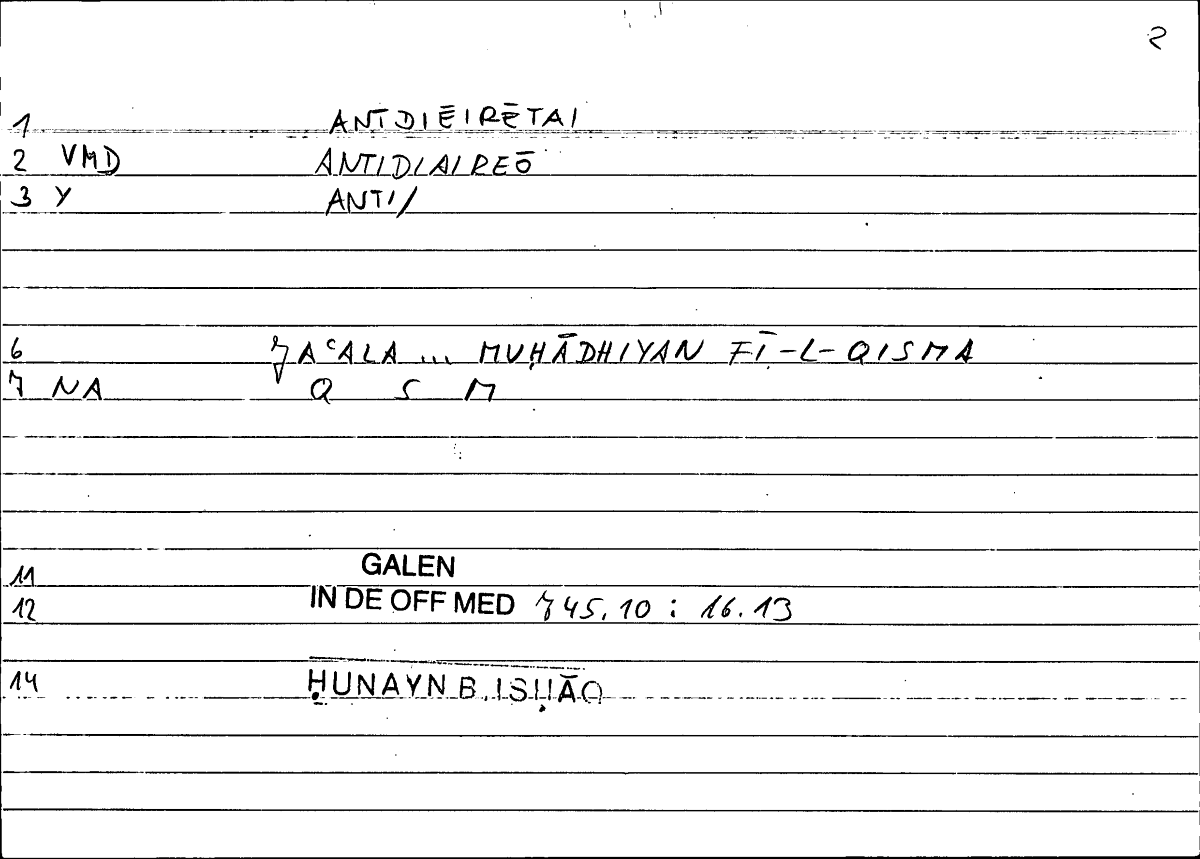 2
1 ANTDIĒIRĒTAI
2 VMD ANTIDIAIREŌ
3 Y ANTI/
6 JAʿALA ... MUḤĀDHIYAN FĪ-L-QISMA
7 NA Q S M
11 GALEN
12 IN DE OFF MED 745.10 : 16.13
14 ḤUNAYN B. ISḤĀQ